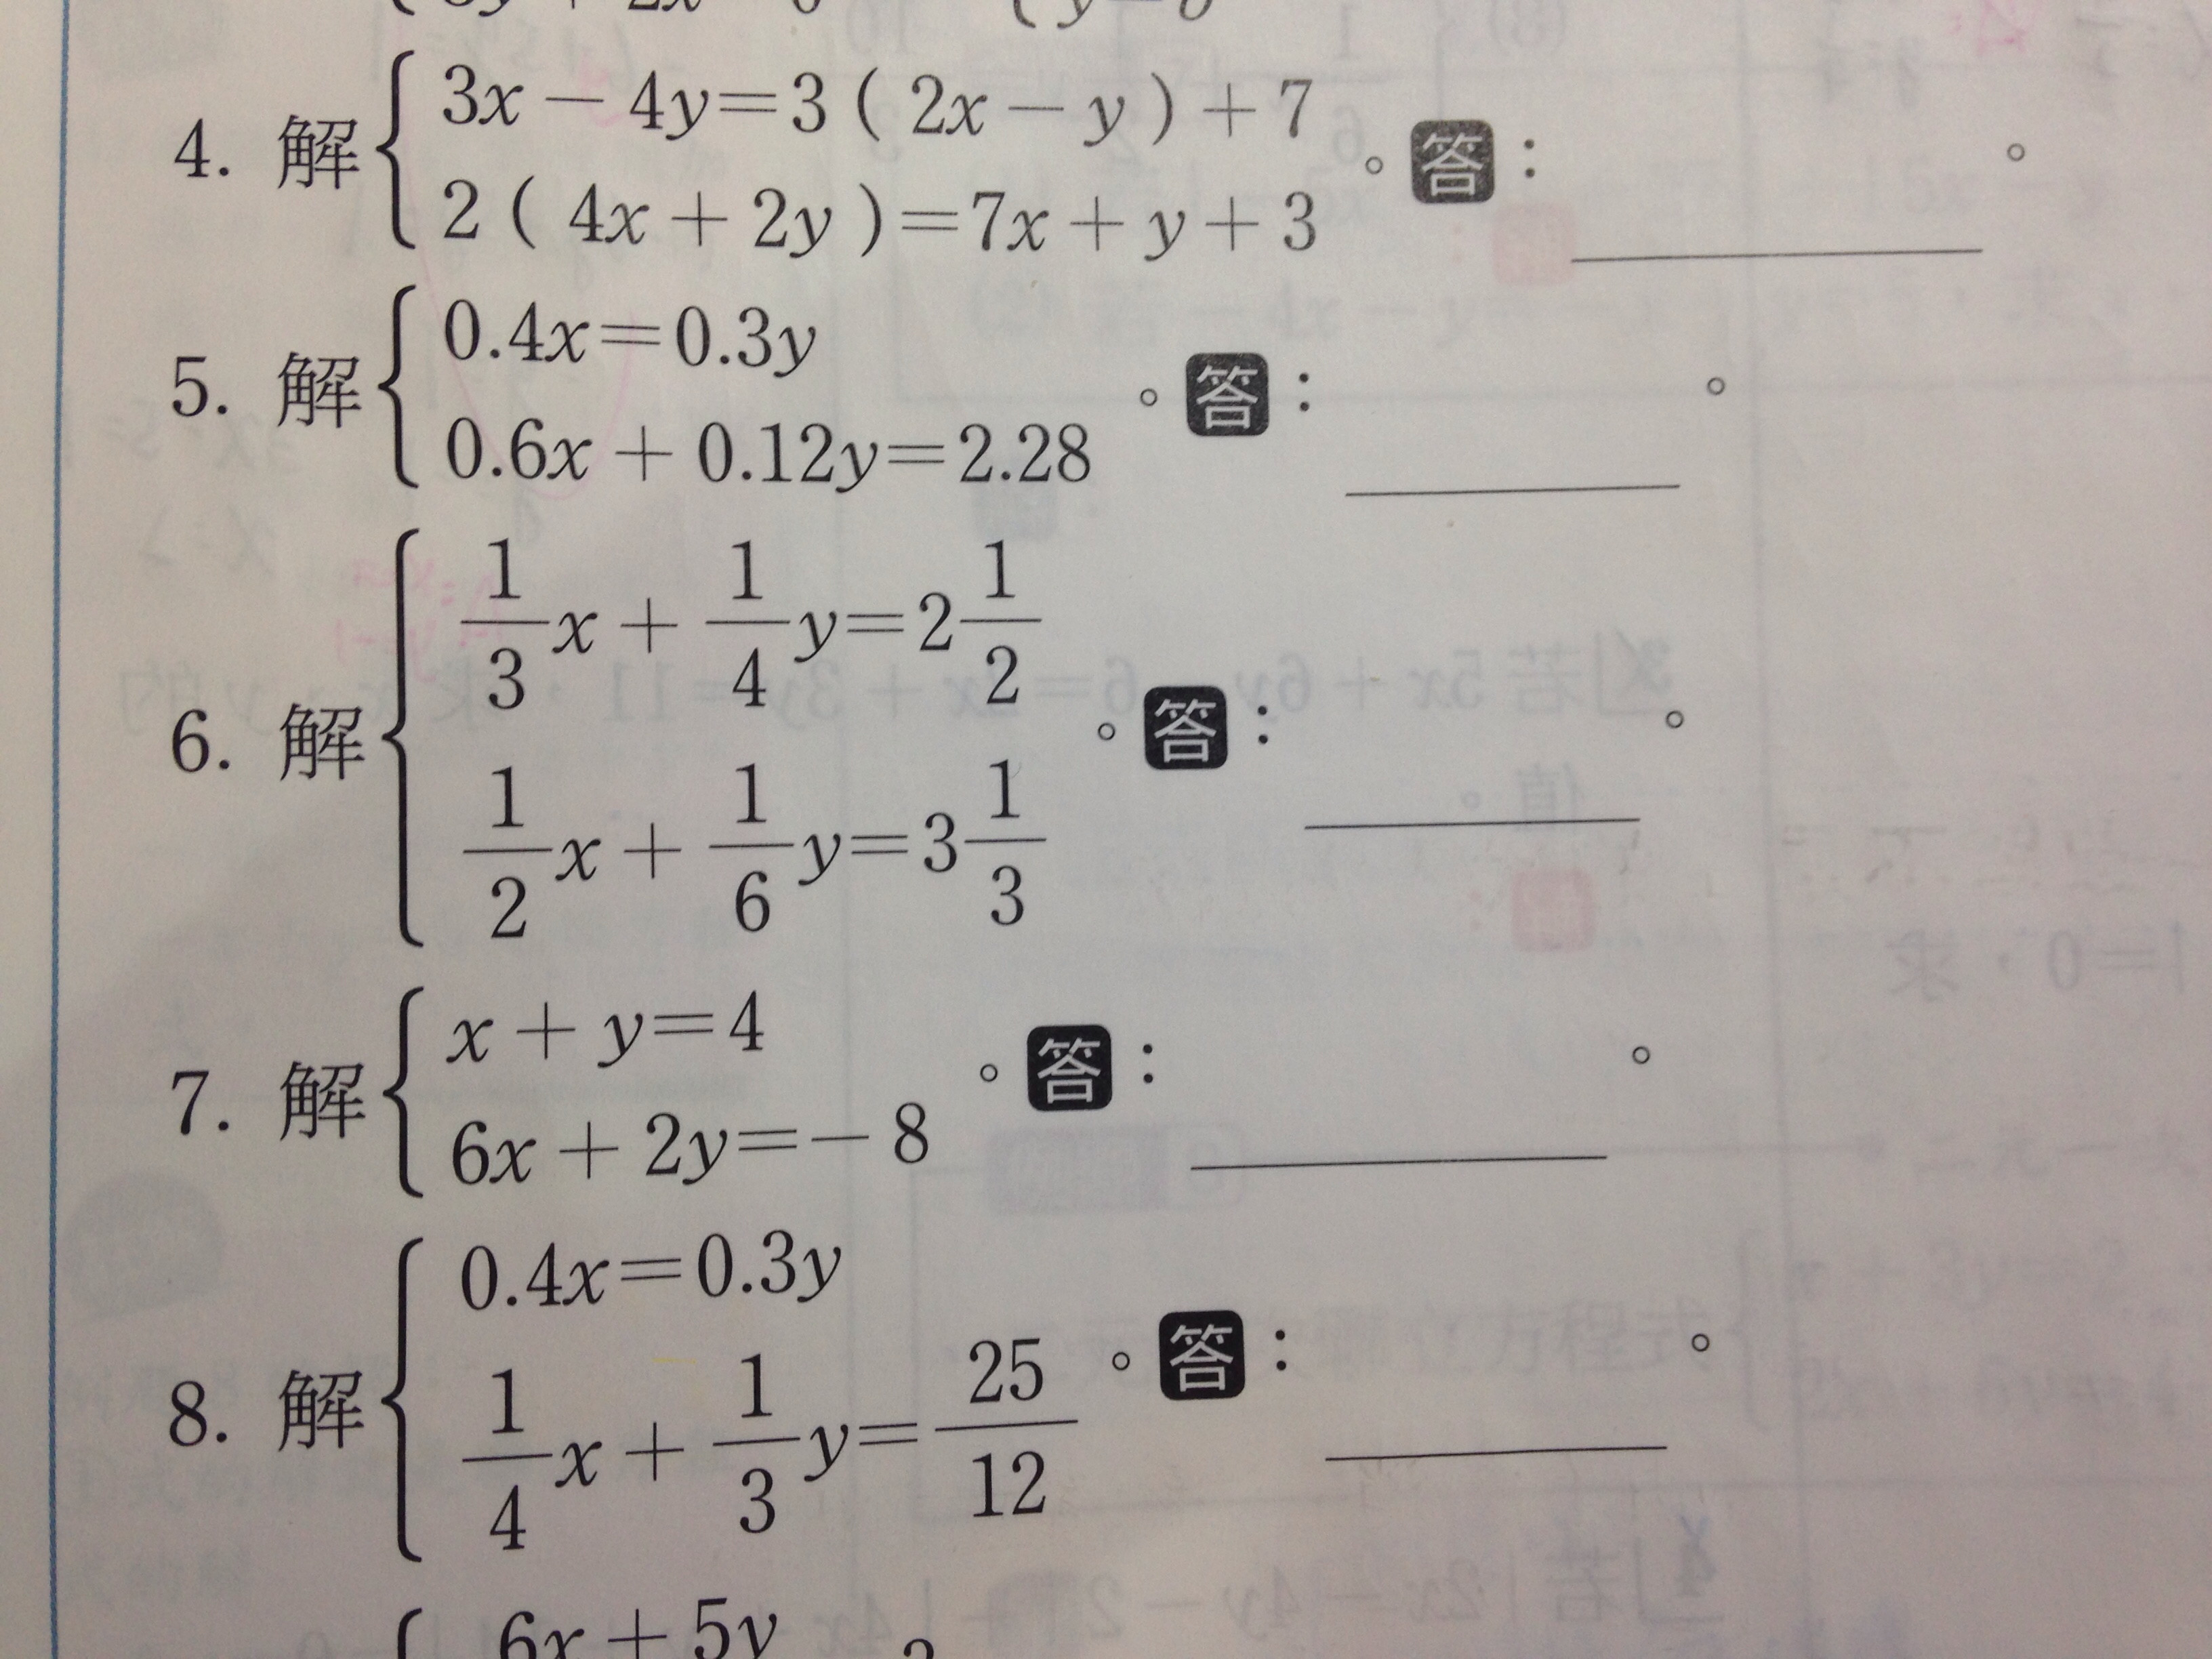 4. 解 { 3x－4y=3（2x－y）+7
2（4x+2y）=7x+y+3 。答：________。
5. 解 { 0.4x=0.3y
0.6x+0.12y=2.28 。答：________。
6. 解 { 1/3 x+1/4 y=2 1/2
1/2 x+1/6 y=3 1/3 。答：________。
7. 解 { x+y=4
6x+2y=－8 。答：________。
8. 解 { 0.4x=0.3y
1/4 x+1/3 y=25/12 。答：________。
6x+5y